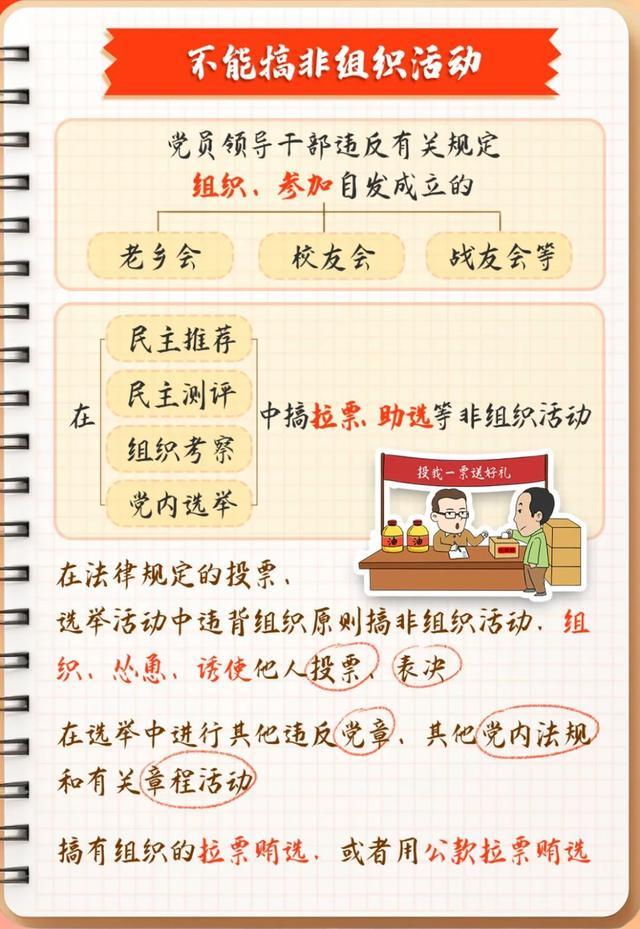 不能搞非组织活动
党员领导干部违反有关规定
组织、参加自发成立的
老乡会
校友会
战友会等
在
民主推荐
民主测评
组织考察
党内选举
中搞拉票、助选等非组织活动
投我一票送好礼
油
油
在法律规定的投票、
选举活动中违背组织原则搞非组织活动，组
织、怂恿、诱使他人投票、表决
在选举中进行其他违反党章、其他党内法规
和有关章程活动
搞有组织的拉票贿选，或者用公款拉票贿选